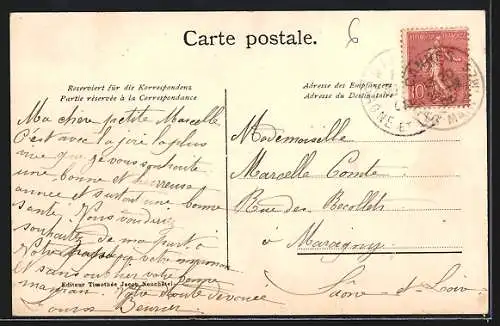 6
Carte postale.
Reserviert für die Korrespondenz
Partie réservée à la Correspondance
Adresse des Empfängers
Adresse du Destinataire
REPUBLIQUE FRANÇAISE
10
Ma chère petite Marcelle
C'est avec la joie la plus
vive que je vous souhaite
une bonne et heureuse
année et surtout une bonne
santé. Vous voudrez
souhaiter de ma part à
Votre
et sans oublier votre
maman. Votre toute dévouée
Editeur Timothée Jacot, Neuchâtel
Mademoiselle
Marcelle Comte
Rue des Recollets
à Marcigny
Saône et Loire